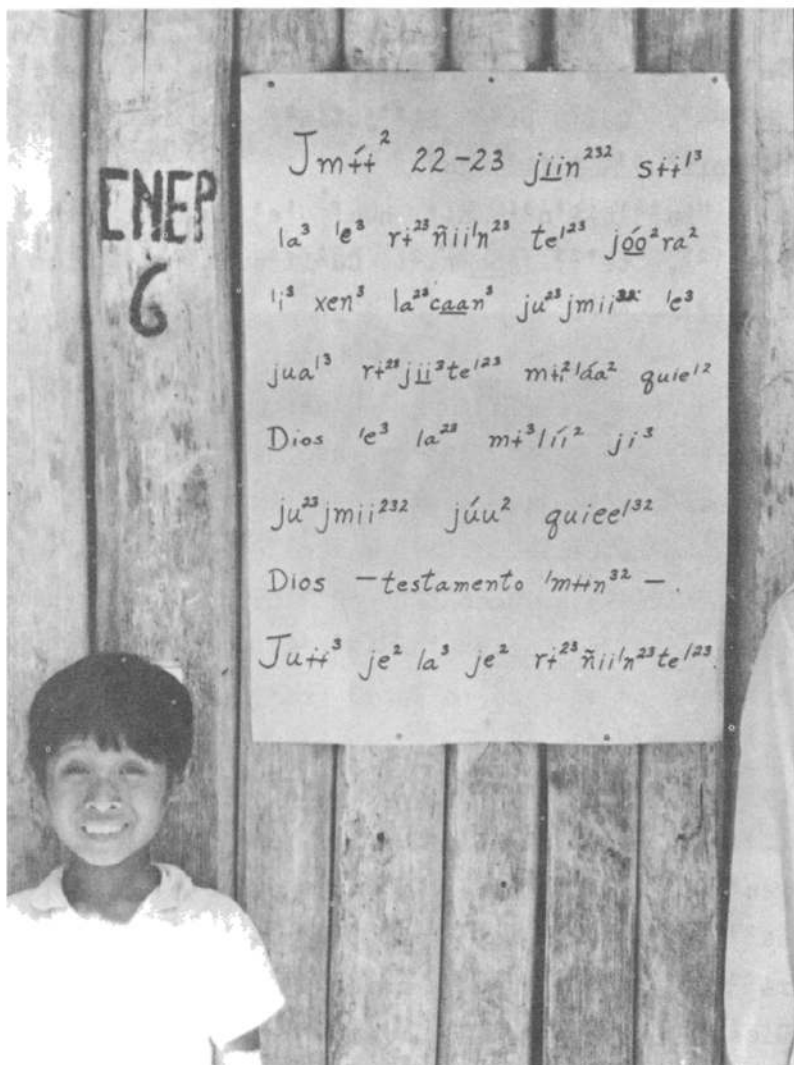 ENEP
6
Jmɨ́ɨ² 22-23 ji̱i̱n²³² sɨɨ'³
la³ 'e³ rɨ²³ñii'n²³ te'²³ jó̱ó̱²ra²
'i³ xen³ la²³ca̱a̱n³ ju²³jmii³² 'e³
jua'³ rɨ²³ji̱i̱²te'²³ mɨ²'áa² quie'²
Dios 'e³ la²³ mɨ³líí² ji³
ju²³jmii²³² júu² quiee'³²
Dios –testamento 'mɨɨn³² –.
Juɨɨ³ je² la³ je² rɨ²³ñii'n²³te'²³.